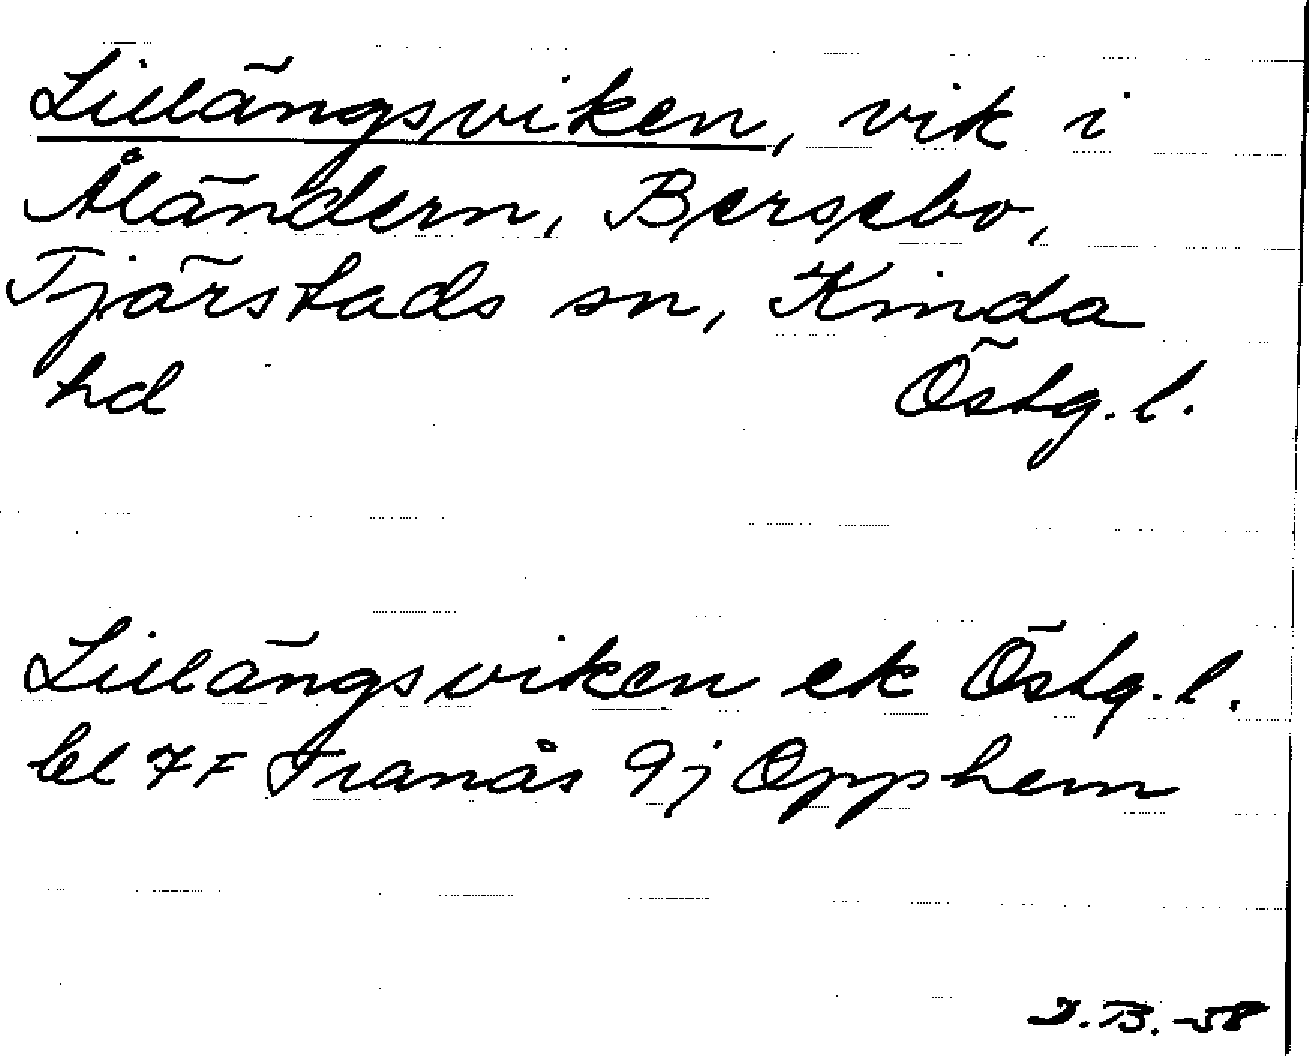 Lillängsviken, vik i
Åländern, Bersebo,
Tjärstads sn, Kinda
hd Östg. l.
Lillängsviken ek Östg. l.
bl 7F Tranås 9j Opphem
I.B. -58